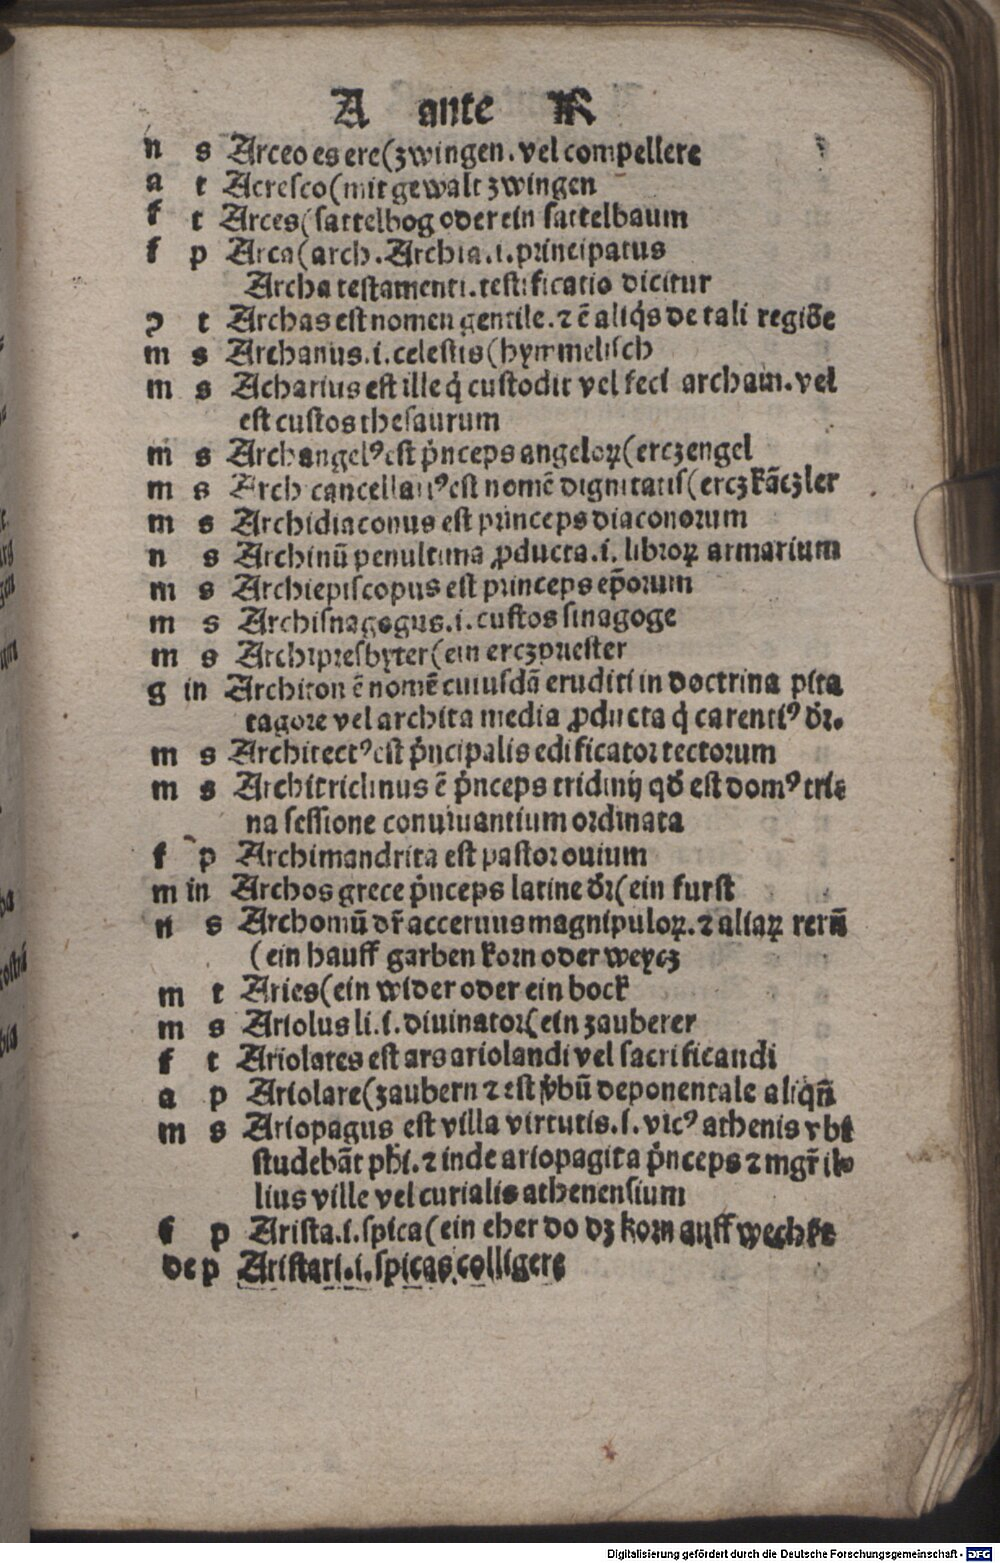 A ante R
n s Arceo es ere(zwingen. vel compellere
a t Acresco(mit gewalt zwingen
f t Arces(sattelbog oder ein sattelbaum
f p Arca(arch. Archia .i. principatus
Archa testamenti. testificatio dicitur
ɔ t Archas est nomen gentile. ⁊ ē aliq̇s de tali regiōe
m s Archanus .i. celestis(hymmelisch
m s Acharius est ille q̇ custodit vel feci archam. vel
est custos thesaurum
m s Archangelꝰ est pṙnceps angeloꝝ(erczengel
m s Arch cancellariꝰ est nomē dignitatis(erczkāczler
m s Archidiaconus est princeps diaconorum
n s Archinū penultima ꝓducta .i. libroꝝ armarium
m s Archiepiscopus est princeps ep̄orum
m s Archisnagogus .i. custos sinagoge
m s Archipresbyter(ein erczpriester
g in Architon ē nomē cuiusdā eruditi in doctrina pita
tagore vel archita media ꝓducta q̇ carentiꝰ dr̄.
m s Architectꝰ est pṙncipalis edificator tectorum
m s Architriclinus ē pṙnceps tridinij qd̄ est domꝰ tri⸗
na sessione conuiuantium ordinata
f p Archimandrita est pastor ouium
m in Archos grece pṙnceps latine dr̄(ein furst
n s Archoniū dr̄ acceruus magnipuloꝝ. ⁊ aliaꝝ rerū
(ein hauff garben korn oder weycz
m t Aries(ein wider oder ein bock
m s Ariolus li .i. diuinator(ein zauberer
f t Ariolates est ars ariolandi vel sacrificandi
a p Ariolare(zaubern ⁊ est v̄bū deponentale aliqn̄
m s Ariopagus est villa virtutis .i. vicꝰ athenis vbi
studebāt ph̄i. ⁊ inde ariopagita pṙnceps ⁊ mgr̄ il⸗
lius ville vel curialis athenensium
f p Arista .i. spica(ein eher do dz korn auff wechst
de p Aristari .i. spicas colligere
Digitalisierung gefördert durch die Deutsche Forschungsgemeinschaft - DFG